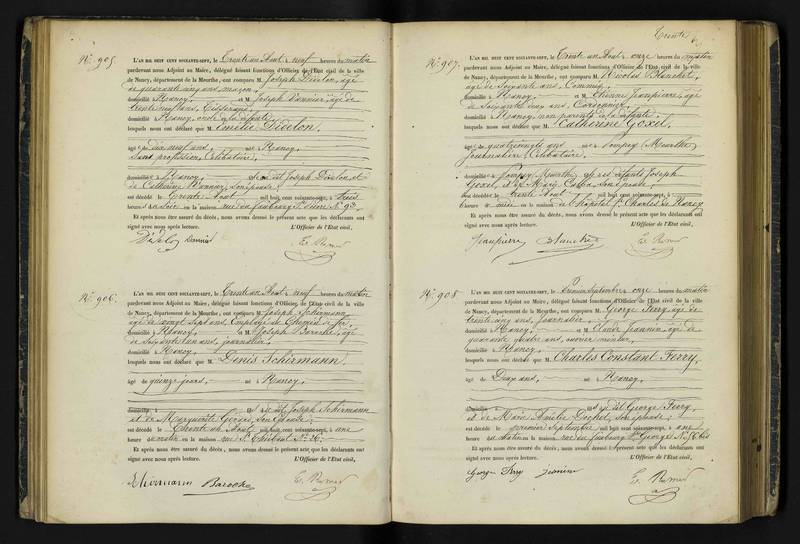 N.° 905.
L'AN MIL HUIT CENT SOIXANTE-SEPT, le Trente un Août, neuf heures du matin
pardevant nous Adjoint au Maire, délégué faisant fonctions d'Officier de l'Etat civil de la ville
de Nancy, département de la Meurthe, ont comparu M. Joseph Didelon, âgé
de quarante cinq ans, maçon,
domicilié à Nancy, et M. Joseph âgé de
trente neuf ans,
domicilié à Nancy, oncle de la défunte
lesquels nous ont déclaré que M. Amélie Didelon,
âgé de dix neuf ans, né à Nancy,
sans profession, Célibataire,
domicilié à Nancy, de Joseph Didelon et
de Catherine son épouse;
est décédé le Trente Août mil huit cent soixante-sept, à
heures du soir en la maison rue du faubourg St. Pierre N.° 93.
Et après nous être assuré du décès, nous avons dressé le présent acte que les déclarants ont
signé avec nous après lecture. L'Officier de l'Etat civil,
N.° 906.
L'AN MIL HUIT CENT SOIXANTE-SEPT, le Trente un Août, neuf heures du matin
pardevant nous Adjoint au Maire, délégué faisant fonctions d'Officier de l'Etat civil de la ville
de Nancy, département de la Meurthe, ont comparu M. Joseph Schirmann,
âgé de vingt sept ans, Employé de Chemin de fer,
domicilié à Nancy, et M. Joseph Baroche, âgé
de soixante ans, journalier
domicilié à Nancy,
lesquels nous ont déclaré que M. Denis Schirmann,
âgé de quinze jours, né à Nancy,
domicilié à de Joseph Schirmann
et de Marguerite son Epouse;
est décédé le Trente un Août mil huit cent soixante-sept, à une
heure du matin en la maison rue St. Thiébaut N.° 36.
Et après nous être assuré du décès, nous avons dressé le présent acte que les déclarants ont
signé avec nous après lecture. L'Officier de l'Etat civil,
Schirmann Baroche
Trente
N.° 907.
L'AN MIL HUIT CENT SOIXANTE-SEPT, le Trente un Août, onze heures du matin
pardevant nous Adjoint au Maire, délégué faisant fonctions d'Officier de l'Etat civil de la ville
de Nancy, département de la Meurthe, ont comparu M. Nicolas Blanchet,
âgé de soixante ans, Commis,
domicilié à Nancy, et M. Etienne Jeanpierre, âgé
de soixante cinq ans, Cordonnier,
domicilié à Nancy, non parents à la défunte
lesquels nous ont déclaré que M. Catherine Goxel,
âgé de quatrevingts ans, né à Pompey (Meurthe)
Journalière Célibataire,
domicilié à Pompey (Meurthe), des défunts Joseph
Goxel, et de Marie son épouse;
est décédé le trente Août mil huit cent soixante-sept, à
heures du soir en la maison de l'hôpital St. Charles de Nancy
Et après nous être assuré du décès, nous avons dressé le présent acte que les déclarants ont
signé avec nous après lecture. L'Officier de l'Etat civil,
Jeanpierre Blanchet
N.° 908.
L'AN MIL HUIT CENT SOIXANTE-SEPT, le Premier Septembre onze heures du matin
pardevant nous Adjoint au Maire, délégué faisant fonctions d'Officier de l'Etat civil de la ville
de Nancy, département de la Meurthe, ont comparu M. George Ferry, âgé de
trente cinq ans, Journalier
domicilié à Nancy, et M. Claude Jeannin, âgé de
quarante quatre ans, ouvrier menuisier,
domicilié à Nancy,
lesquels nous ont déclaré que M. Charles Constant Ferry,
âgé de Deux ans, né à Nancy,
domicilié à de George Ferry,
et de Marie Amélie son épouse;
est décédé le premier Septembre mil huit cent soixante-sept, à une
heure du matin en la maison rue du faubourg St. George N.° bis
Et après nous être assuré du décès, nous avons dressé le présent acte que les déclarants ont
signé avec nous après lecture. L'Officier de l'Etat civil,
George Ferry Jeannin